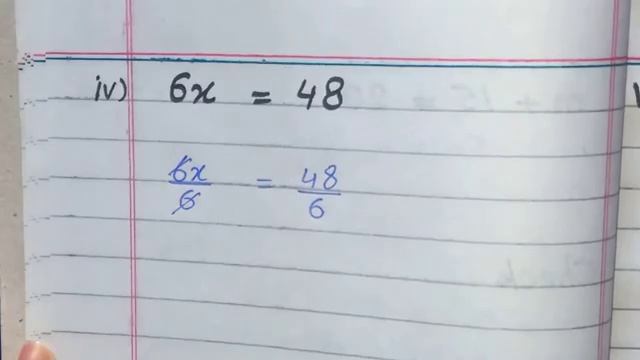 iv) 6x = 48
6x/6 = 48/6